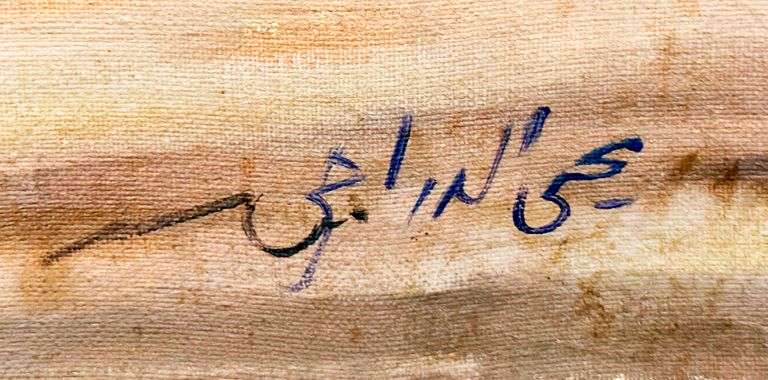 يحي الدراجي